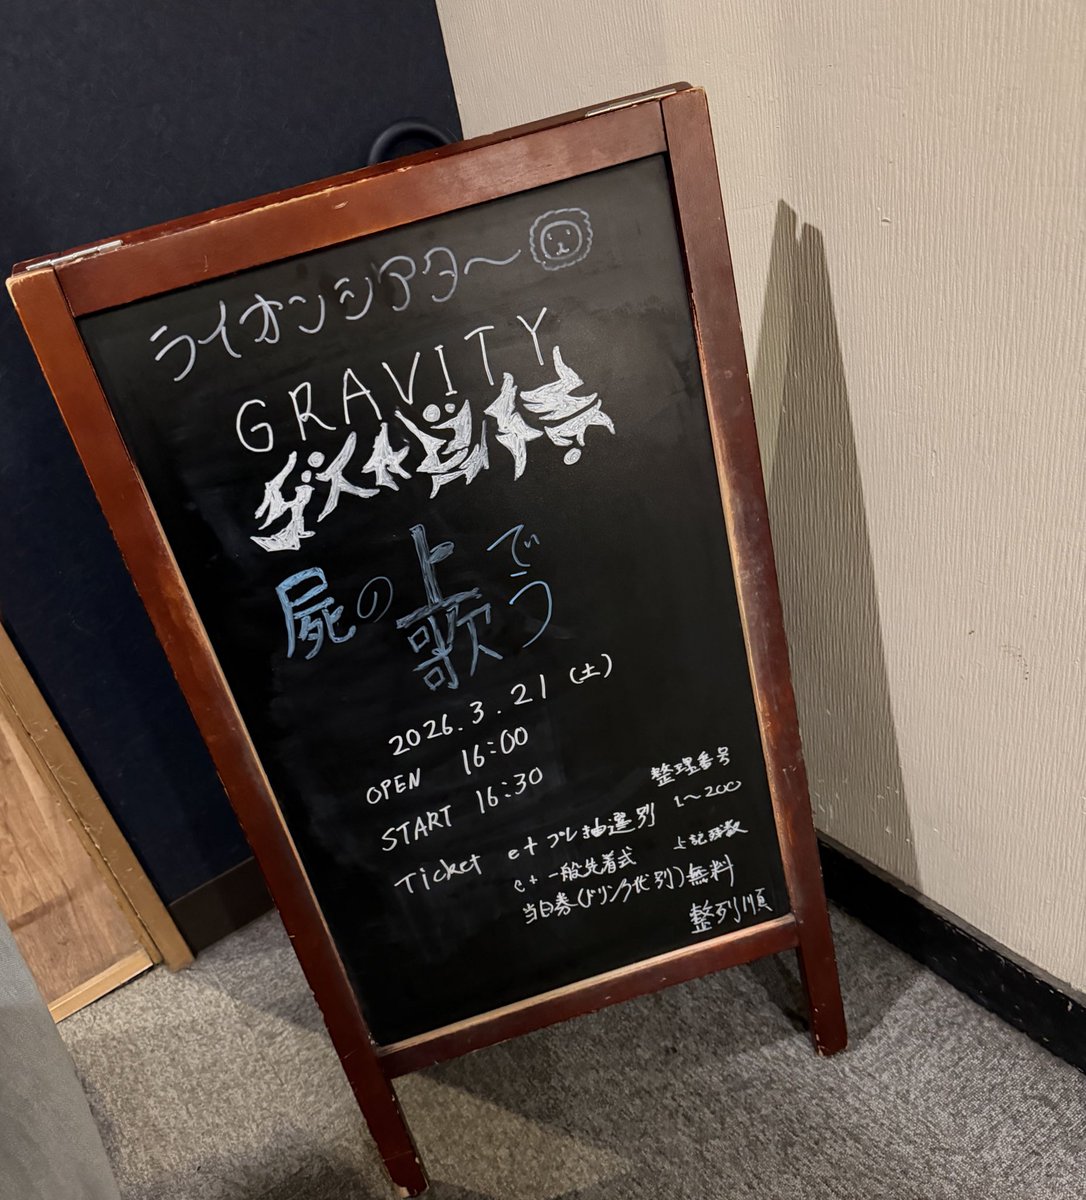 ライオンシアター
GRAVITY
屍の上で
歌う
2026.3.21(土)
OPEN 16:00
START 16:30
整理番号
Ticket e+ プレ抽選別 1~200
e+ 一般先着式
当日券(ドリンク代別)無料
整列順